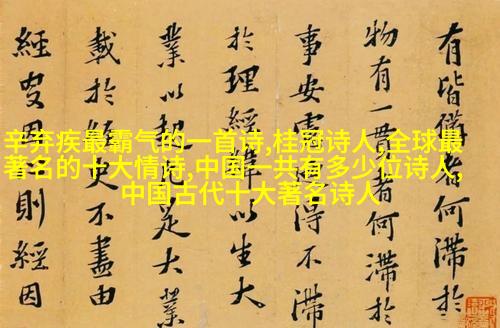 辛弃疾最霸气的一首诗,桂冠诗人,全球最
著名的十大情诗,中国一共有多少位诗人,
中国古代十大著名诗人
有皆 者何滯於
物有一 者何滯於
事安 得不滯
於理經 以生大
業以 大業
載於 史不盡由
經 則經因